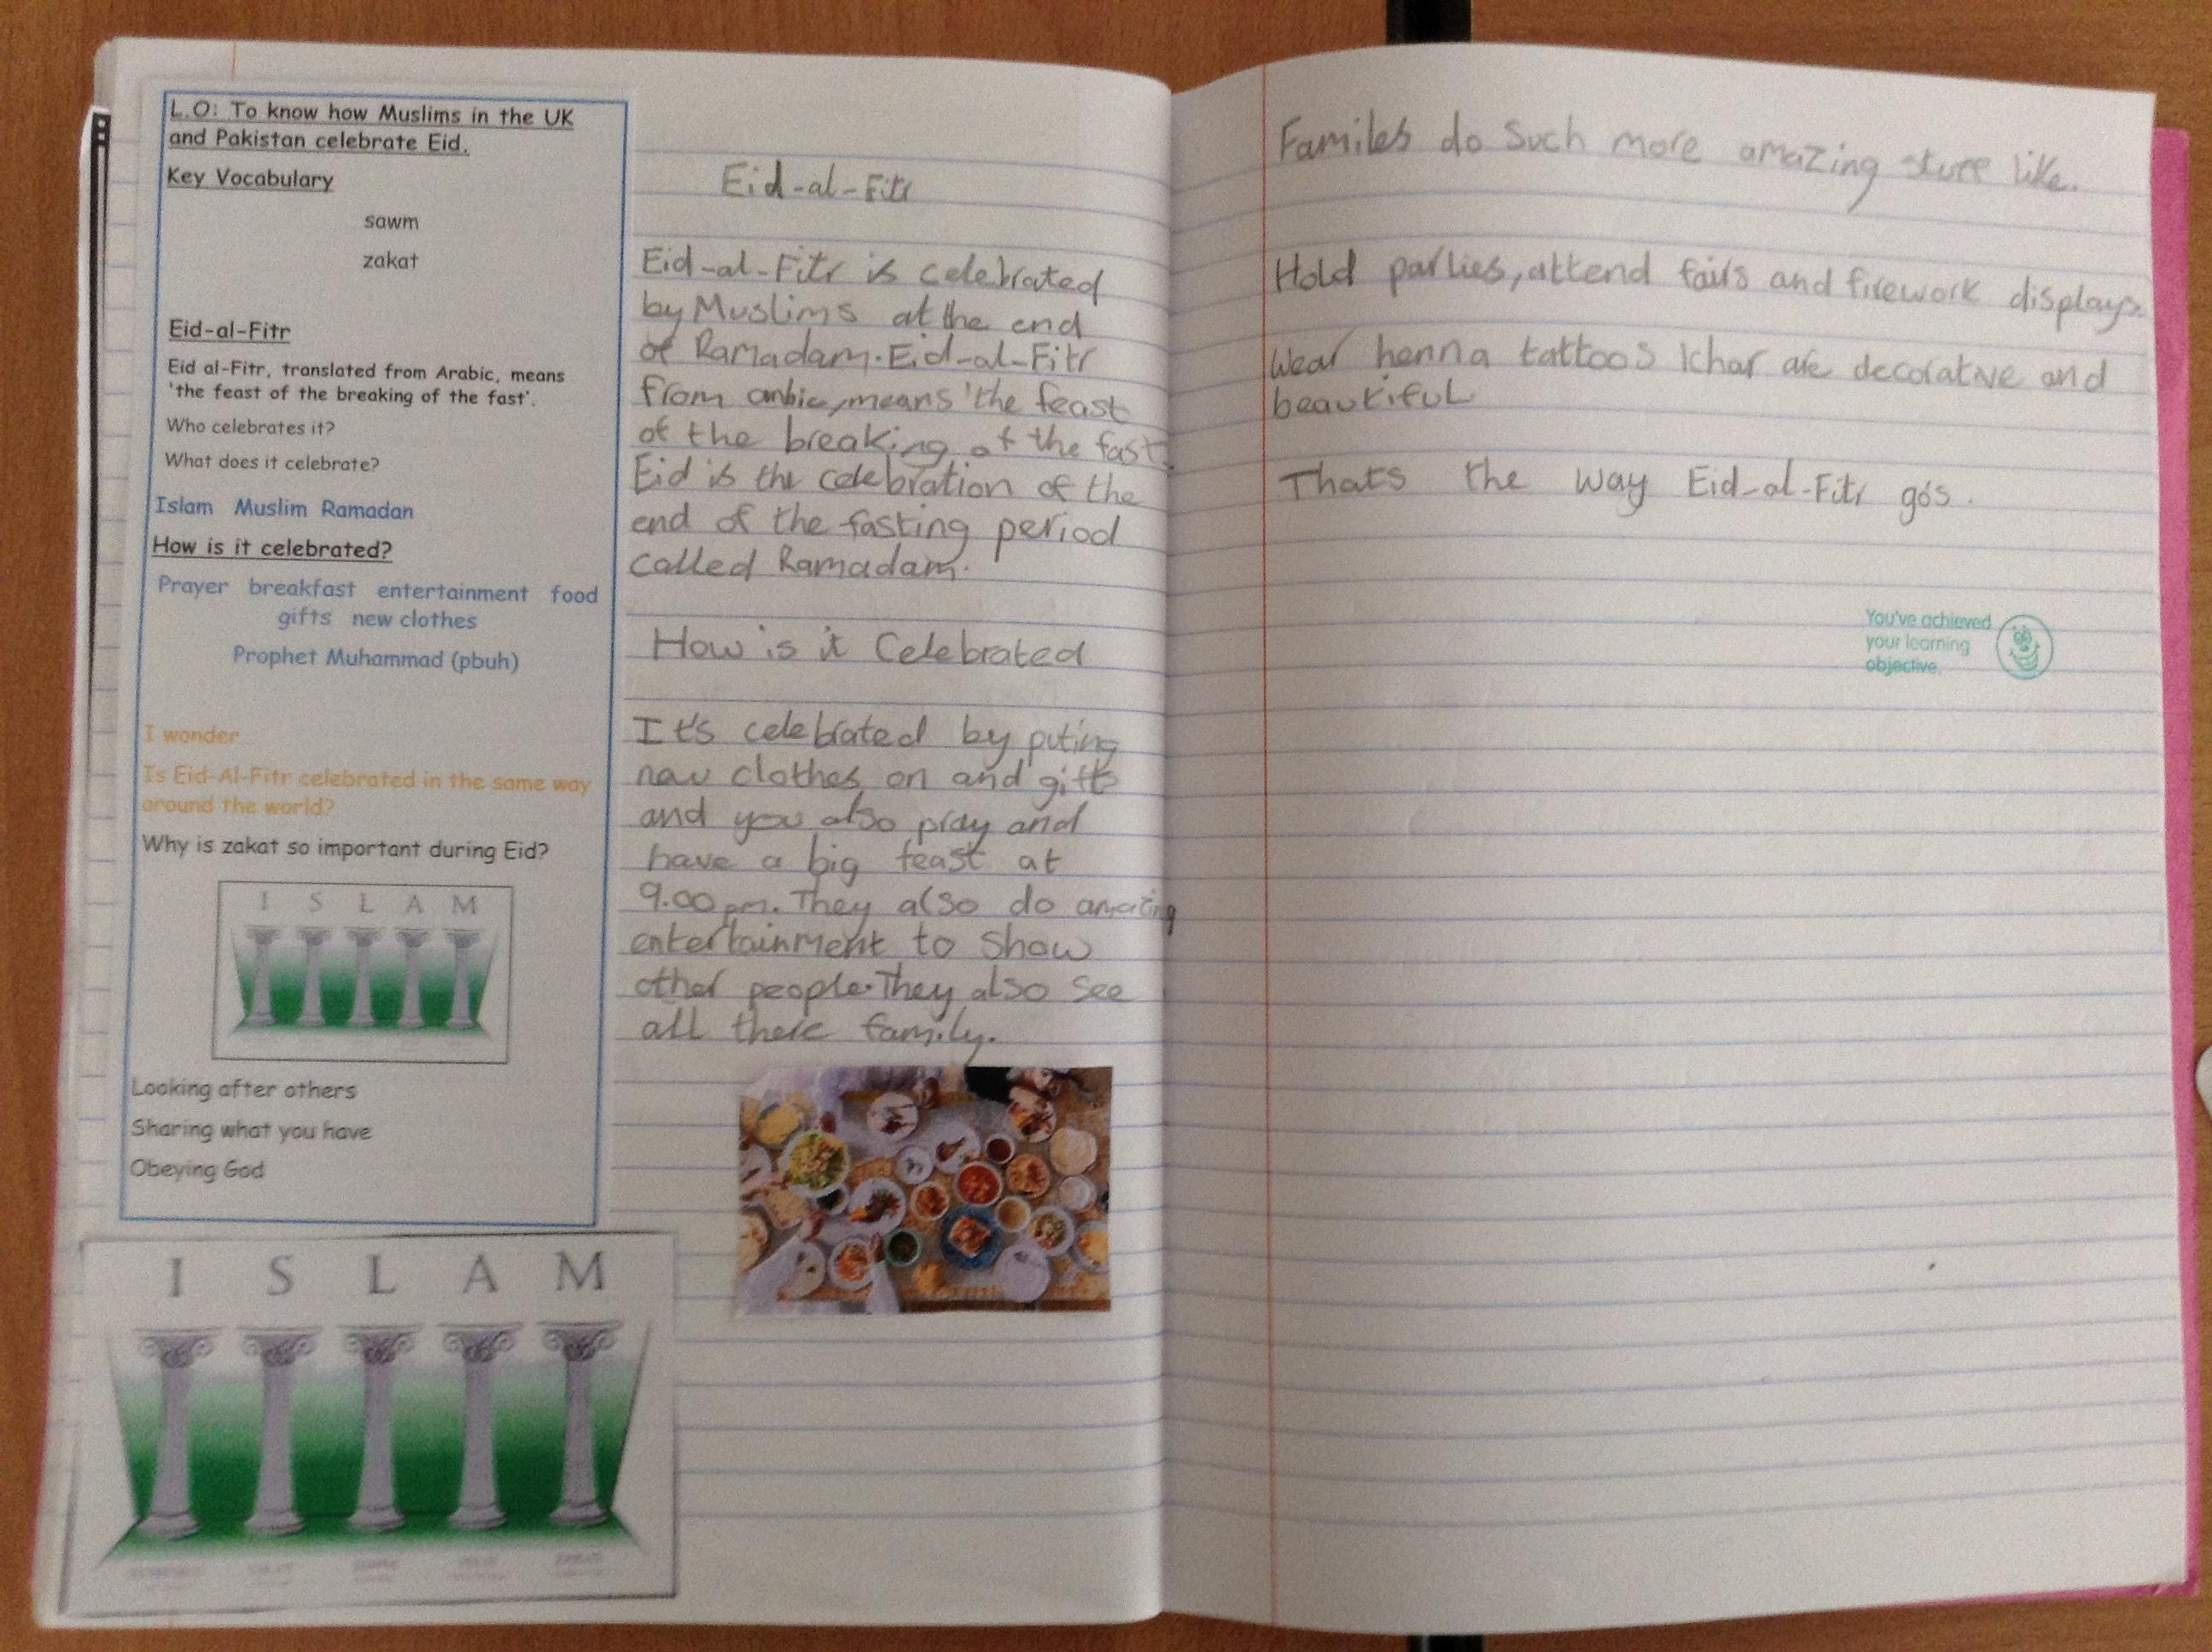 L.O: To know how Muslims in the UK
and Pakistan celebrate Eid.
Key Vocabulary
sawm
zakat
Eid-al-Fitr
Eid al-Fitr, translated from Arabic, means
'the feast of the breaking of the fast'.
Who celebrates it?
What does it celebrate?
Islam Muslim Ramadan
How is it celebrated?
Prayer breakfast entertainment food
gifts new clothes
Prophet Muhammad (pbuh)
I wonder
Is Eid-Al-Fitr celebrated in the same way
around the world?
Why is zakat so important during Eid?
I S L A M
Looking after others
Sharing what you have
Obeying God
I S L A M
Eid-al-Fitr
Eid-al-Fitr is celebrated
by Muslims at the end
of Ramadam. Eid-al-Fitr
from means 'the feast
of the breaking of the fast
Eid is the celebration of the
end of the fasting period
called Ramadam.
How is it Celebrated
It's celebrated by puting
new clothes on and gifts
and you also pray and
have a big feast at
9.00 pm. They also do amazing
entertainment to show
other people. They also see
all there family.
Familes do Such more amazing stuff like.
Hold parties, attend fairs and firework displays.
Wear henna tattoos are decorative and
beautiful
Thats the way Eid-al-Fitr gos.
You've achieved
your learning
objective.